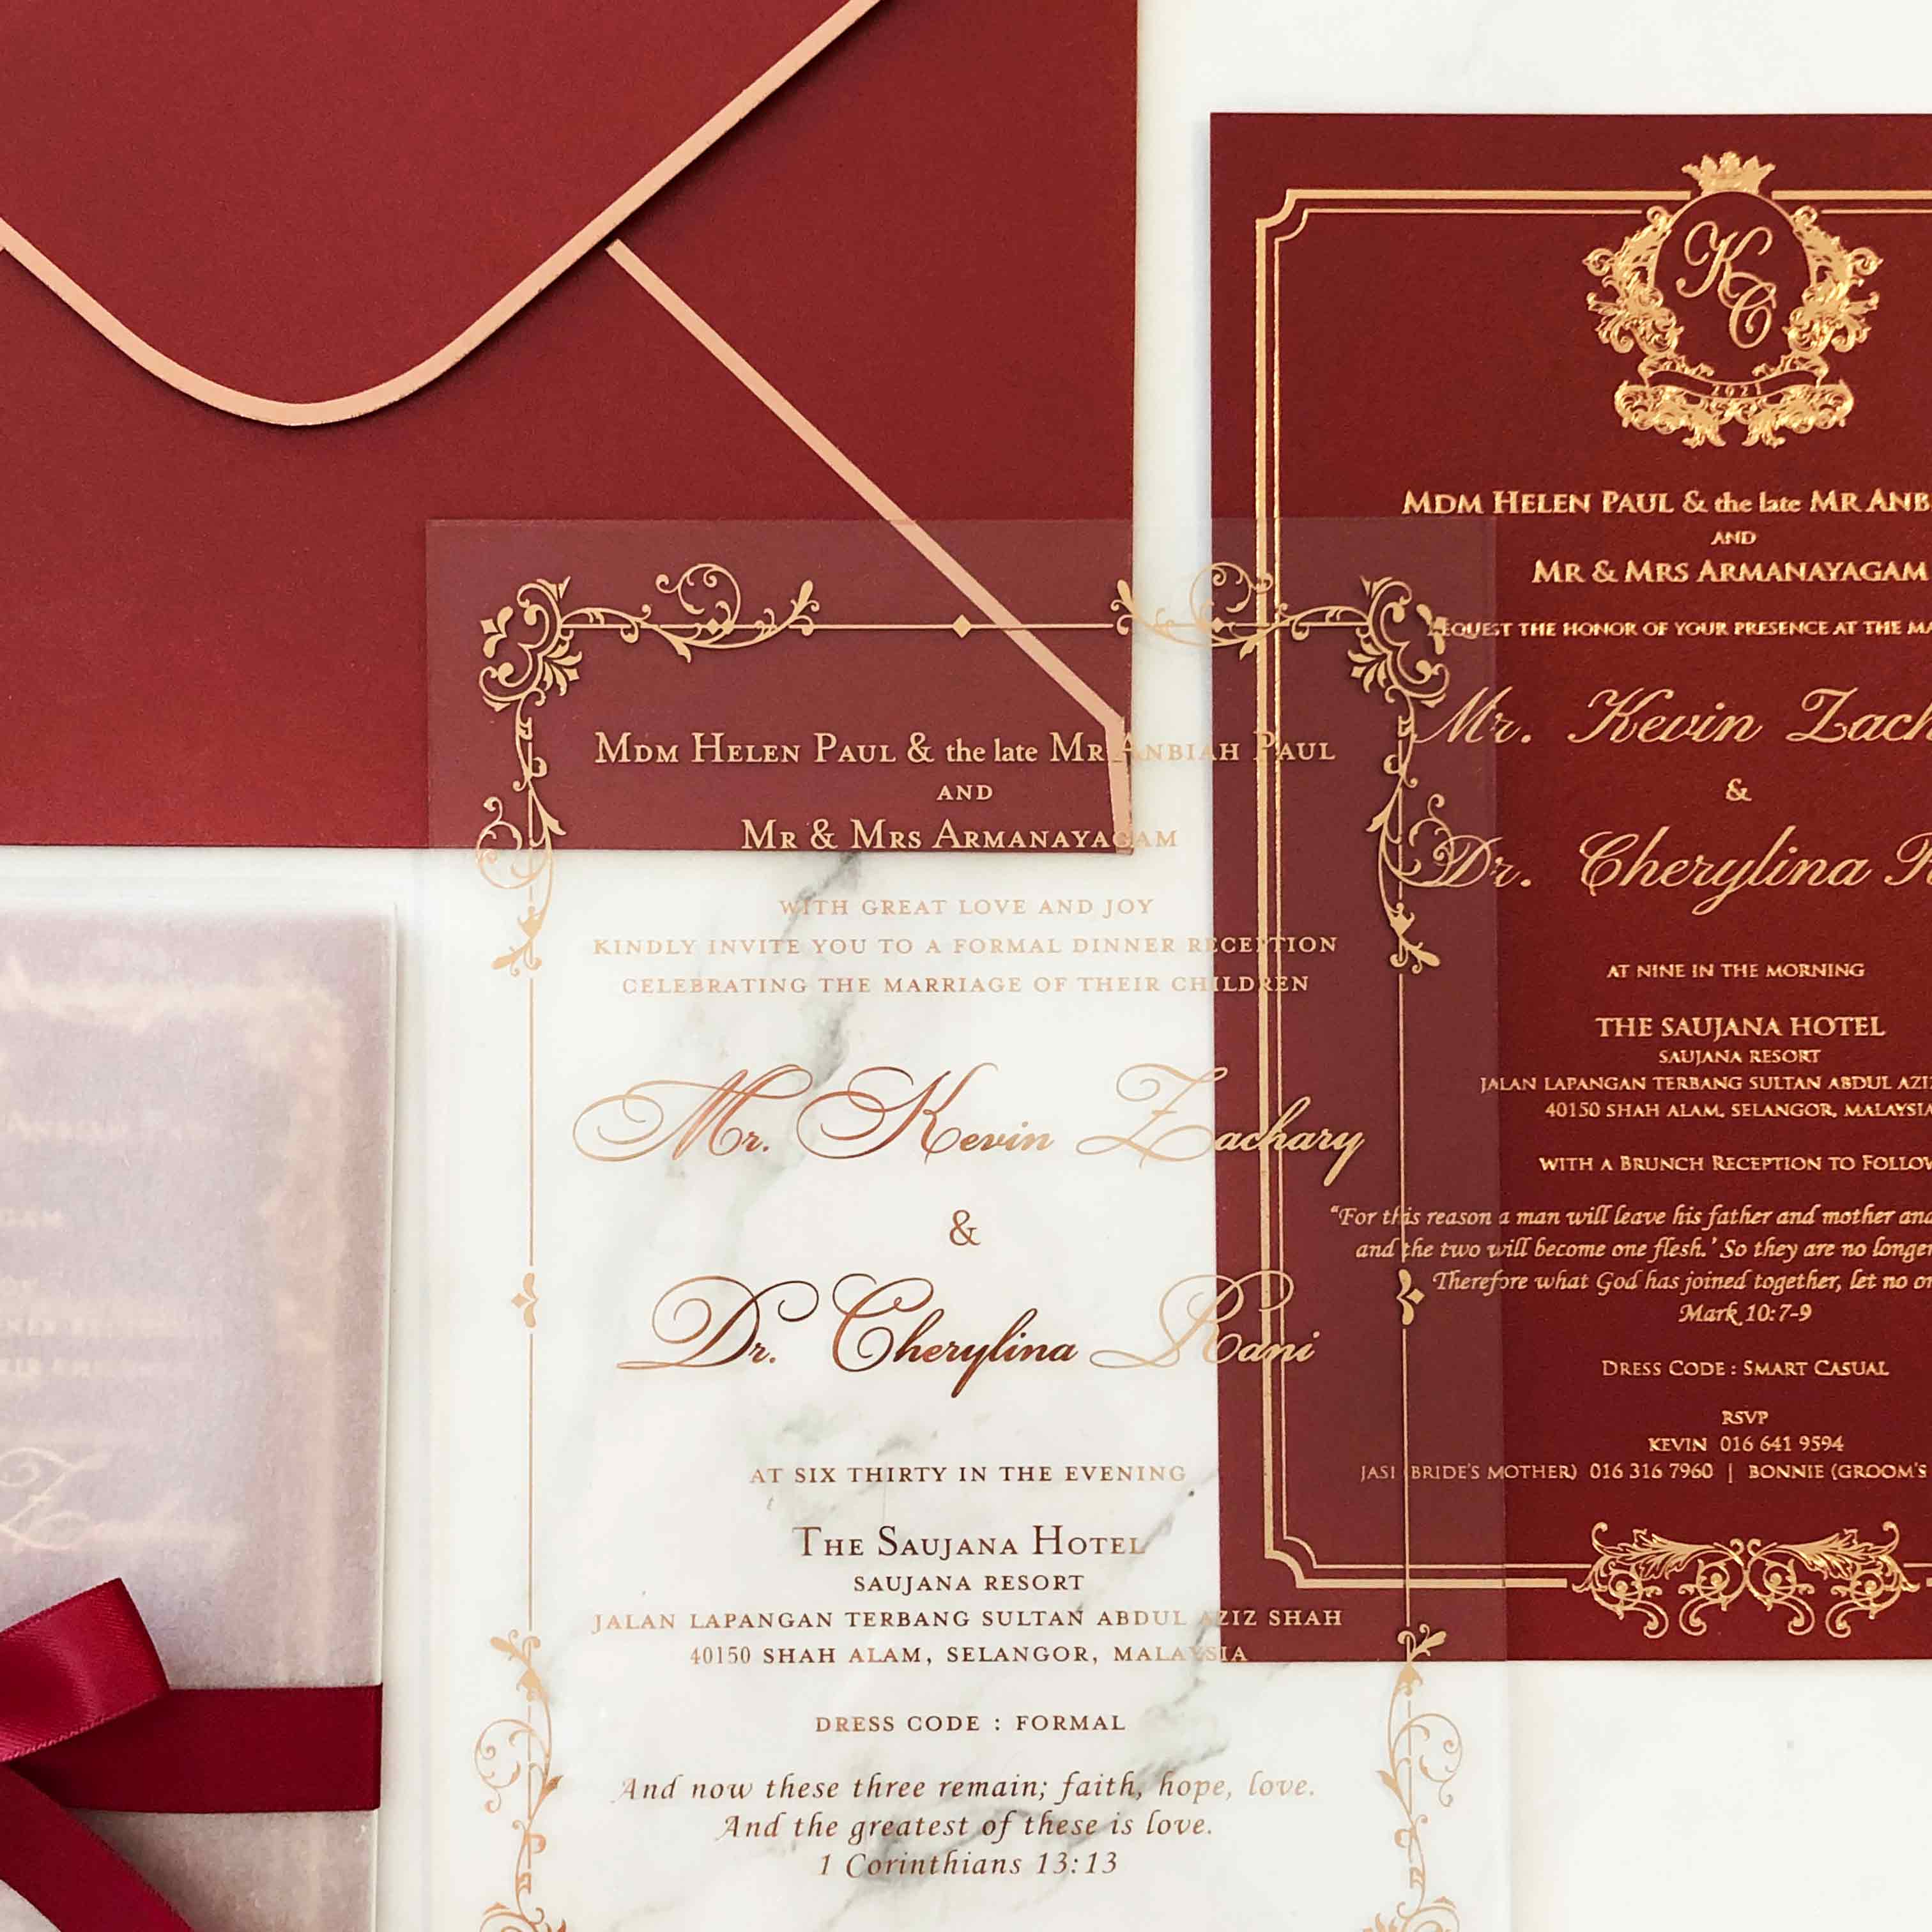 MDM HELEN PAUL & the late MR ANBIAH PAUL
AND
MR & MRS ARMANAYAGAM
WITH GREAT LOVE AND JOY
KINDLY INVITE YOU TO A FORMAL DINNER RECEPTION
CELEBRATING THE MARRIAGE OF THEIR CHILDREN
Mr. Kevin Zachary
&
Dr. Cherylina Rani
AT SIX THIRTY IN THE EVENING
THE SAUJANA HOTEL
SAUJANA RESORT
JALAN LAPANGAN TERBANG SULTAN ABDUL AZIZ SHAH
40150 SHAH ALAM, SELANGOR, MALAYSIA
DRESS CODE : FORMAL
And now these three remain; faith, hope, love.
And the greatest of these is love.
1 Corinthians 13:13
KC
2021
MDM HELEN PAUL & the late MR ANB
AND
MR & MRS ARMANAYAGAM
REQUEST THE HONOR OF YOUR PRESENCE AT THE MA
Mr. Kevin Zach
&
Dr. Cherylina R
AT NINE IN THE MORNING
THE SAUJANA HOTEL
SAUJANA RESORT
JALAN LAPANGAN TERBANG SULTAN ABDUL AZI
40150 SHAH ALAM, SELANGOR, MALAYSIA
WITH A BRUNCH RECEPTION TO FOLLOW
"For this reason a man will leave his father and mother and
and the two will become one flesh.' So they are no longer
Therefore what God has joined together, let no on
Mark 10:7-9
DRESS CODE : SMART CASUAL
RSVP
KEVIN 016 641 9594
JASI (BRIDE'S MOTHER) 016 316 7960 | BONNIE (GROOM'S